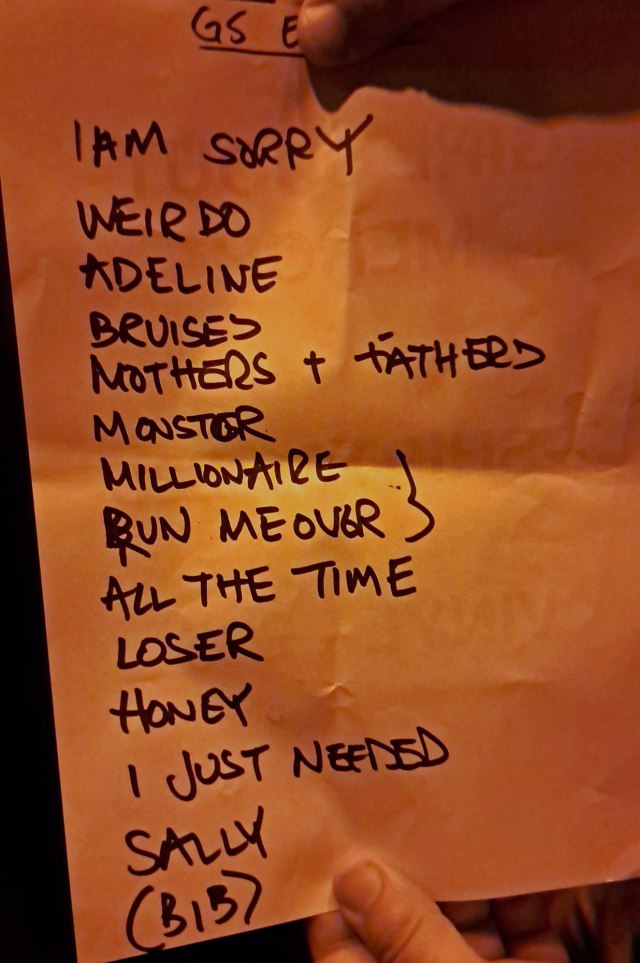 GS E
I AM SORRY
WEIRDO
ADELINE
BRUISES
MOTHERS + FATHERS
MONSTER
MILLIONAIRE
RUN ME OVER
ALL THE TIME
LOSER
HONEY
I JUST NEEDED
SALLY
(BIB)